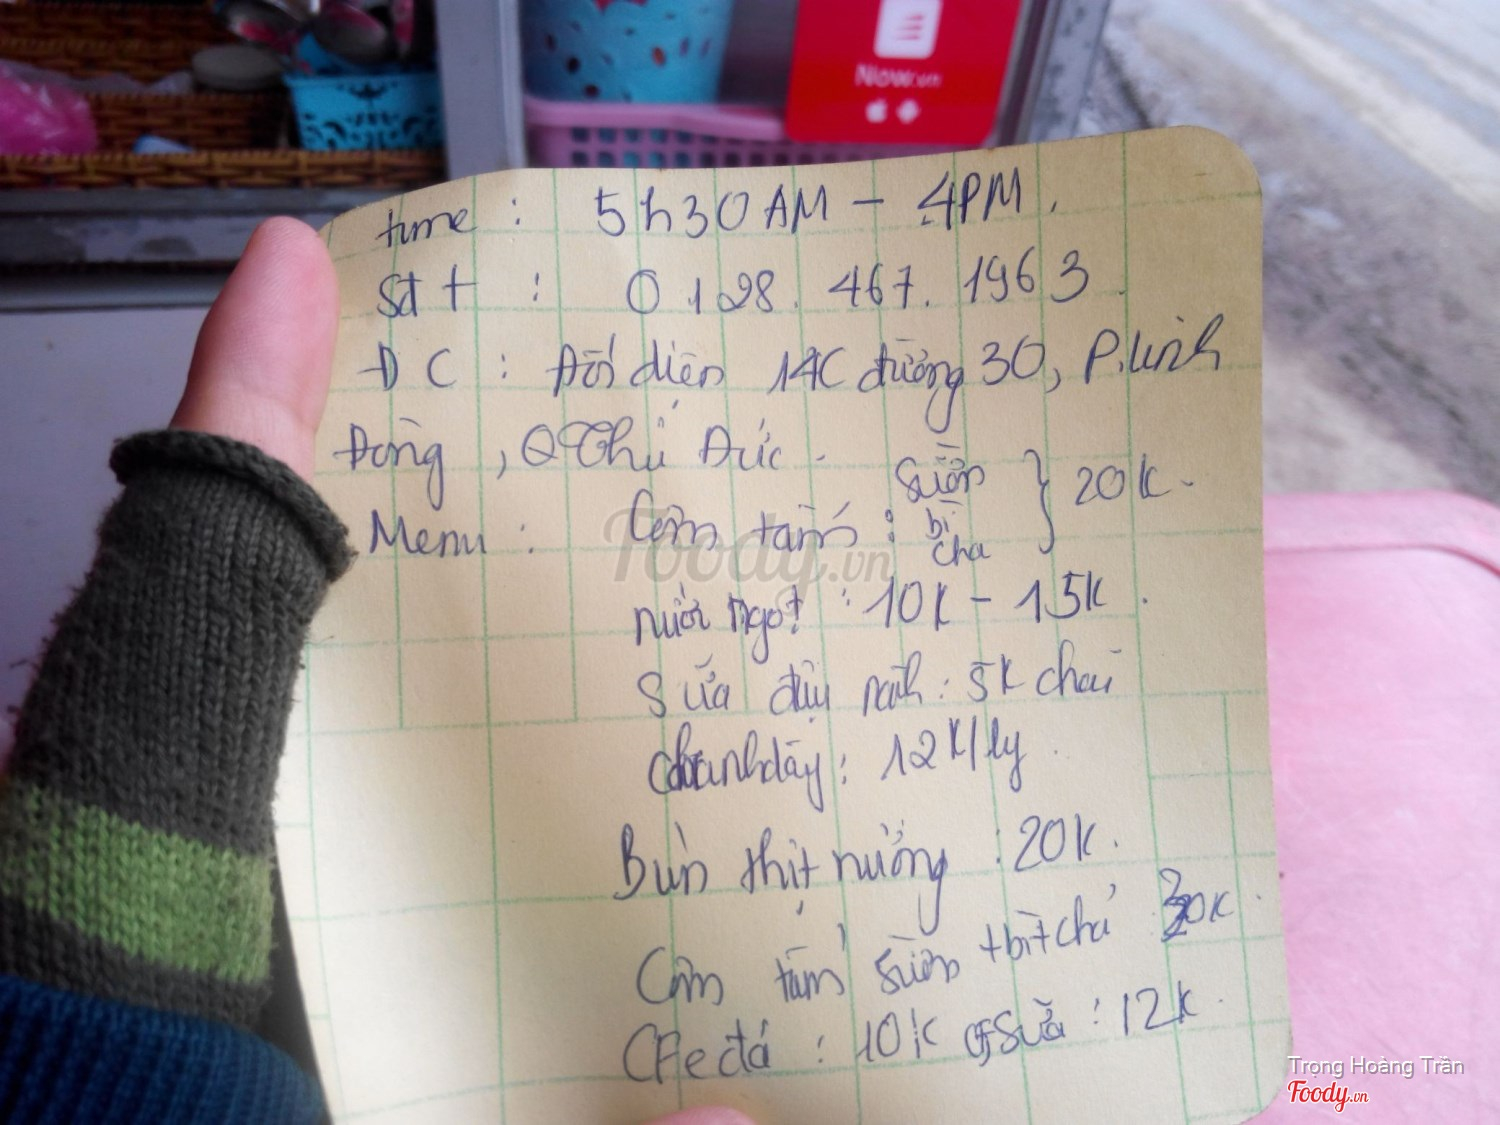 Now.vn
time : 5h30 AM - 4PM.
Sđt : 0128.467.1963.
ĐC : Đối diện 14C đường 30, P. Linh
Đông, Q Thủ Đức.
Menu : Cơm tấm : Sườn
bì
chả
} 20K.
nước ngọt : 10K - 15K.
Sữa đậu nành : 5K chai
chanh dây : 12K/ly.
Bún thịt nướng : 20K.
Cơm tấm sườn + bì + chả : 30K.
CFe đá : 10K CF sữa : 12K.
Foody.vn
Trọng Hoàng Trần
Foody.vn